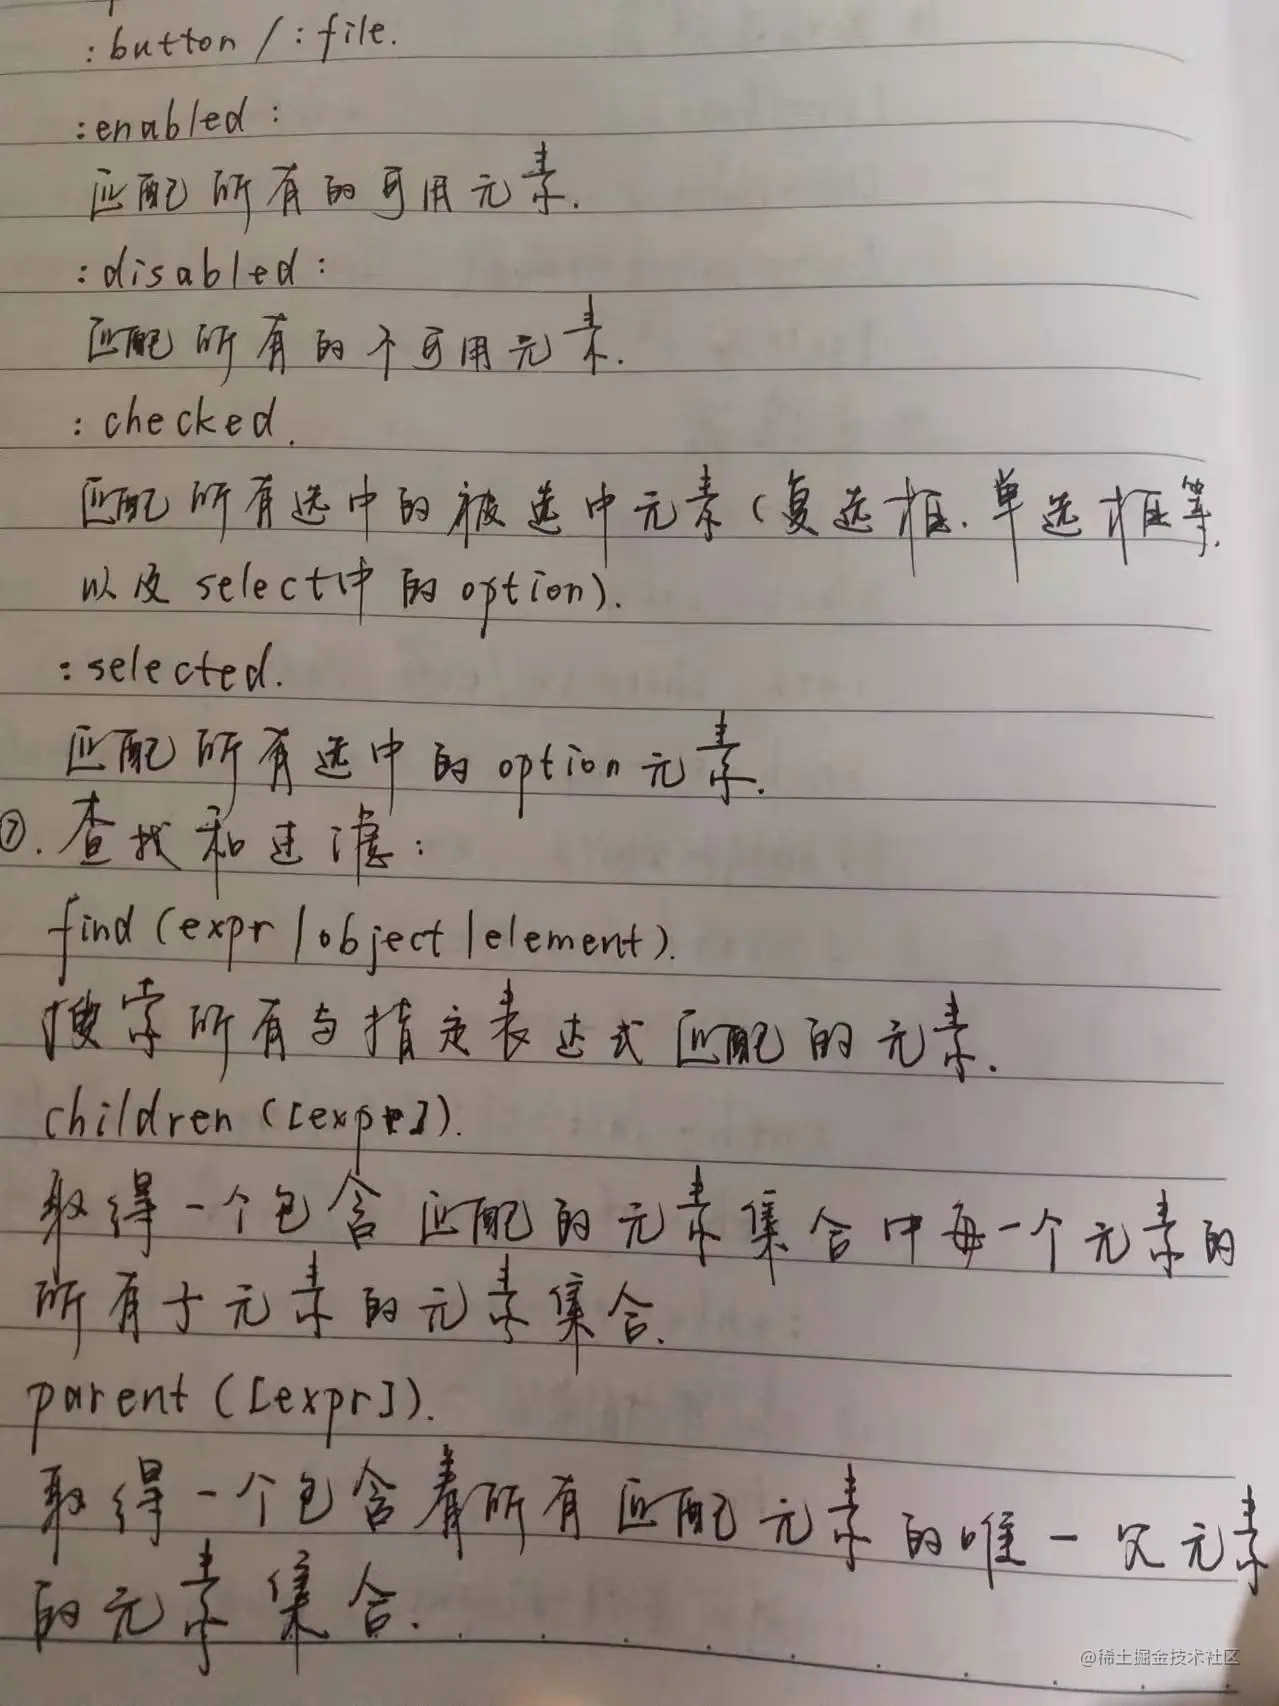 :button / :file.
:enabled:
匹配所有的可用元素.
:disabled:
匹配所有的不可用元素.
:checked.
匹配所有选中的被选中元素(复选框.单选框等.
以及select中的option).
:selected.
匹配所有选中的option元素.
⑦.查找和过滤:
find(expr|object|element).
搜索所有与指定表达式匹配的元素.
children([expr]).
取得一个包含匹配的元素集合中每一个元素的
所有子元素的元素集合.
parent([expr]).
取得一个包含着所有匹配元素的唯一父元素
的元素集合.
@稀土掘金技术社区